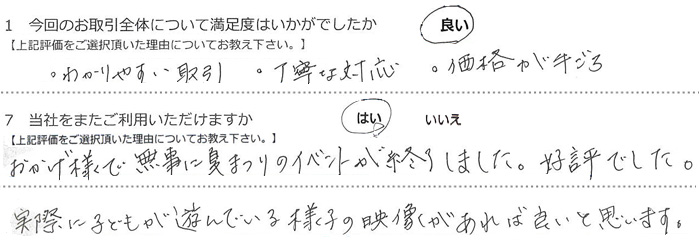 1 今回のお取引全体について満足度はいかがでしたか 良い
【上記評価をご選択頂いた理由についてお教え下さい。】
・わかりやすい取引 ・丁寧な対応 ・価格が手ごろ
7 当社をまたご利用いただけますか はい いいえ
【上記評価をご選択頂いた理由についてお教え下さい。】
おかげ様で無事に夏まつりのイベントが終了しました。好評でした。
実際に子どもが遊んでいる様子の映像があれば良いと思います。